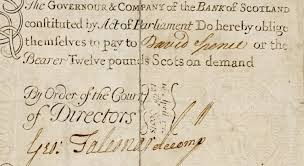 The GOVERNOUR & COMPANY of the BANK of SCOTLAND
constituted by Act of Parliament Do hereby oblige
themselves to pay to David Spence or the
Bearer Twelve pounds Scots on demand
By Order of the Court
of Directors
Geo: